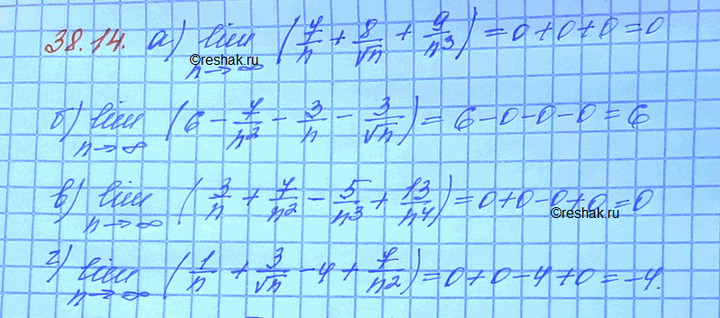 38.14. а) lim n→∞ (7/n + 8/√n + 9/n³) = 0+0+0=0
©reshak.ru
б) lim n→∞ (6 − 7/n² − 3/n − 3/√n) = 6−0−0−0=6
в) lim n→∞ (3/n + 7/n² − 5/n³ + 13/n⁴) = 0+0−0+0=0
©reshak.ru
г) lim n→∞ (1/n + 3/√n − 4 + 7/n²) = 0+0−4+0=−4.